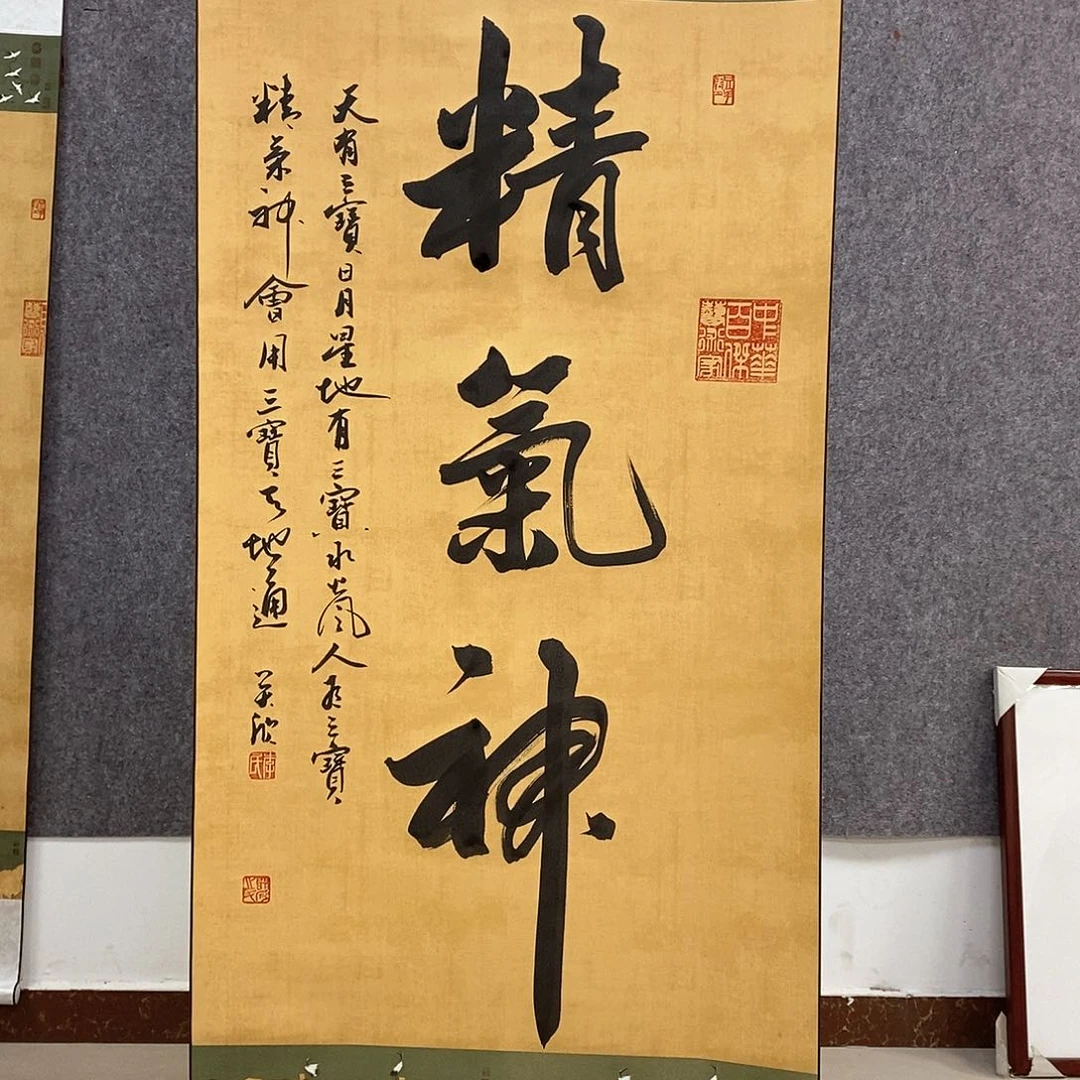 精氣神
天有三寶日月星地有三寶水火風人有三寶
精氣神會用三寶天地通
中華百傑藝術家